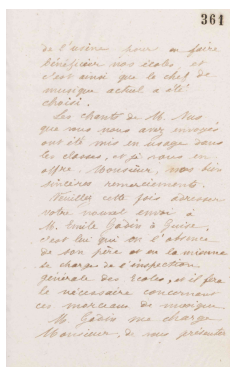 361
de l'usine pour en faire
bénéficier nos écoles, et
c'est ainsi que le chef de
musique actuel a été
choisi.
Les chants de M. Nus
que vous nous avez envoyés
ont été mis en usage dans
les classes, et je vous en
offre, Monsieur, mes bien
sincères remerciements.
Veuillez cette fois adresser
votre nouvel envoi à
M. Emile Godin à Guise,
c'est lui qui en l'absence
de son père et en la mienne
se charge de l'inspection
générale des Ecoles, et il fera
le nécessaire concernant
ces morceaux de musique.
M. Godin me charge
Monsieur, de vous présenter